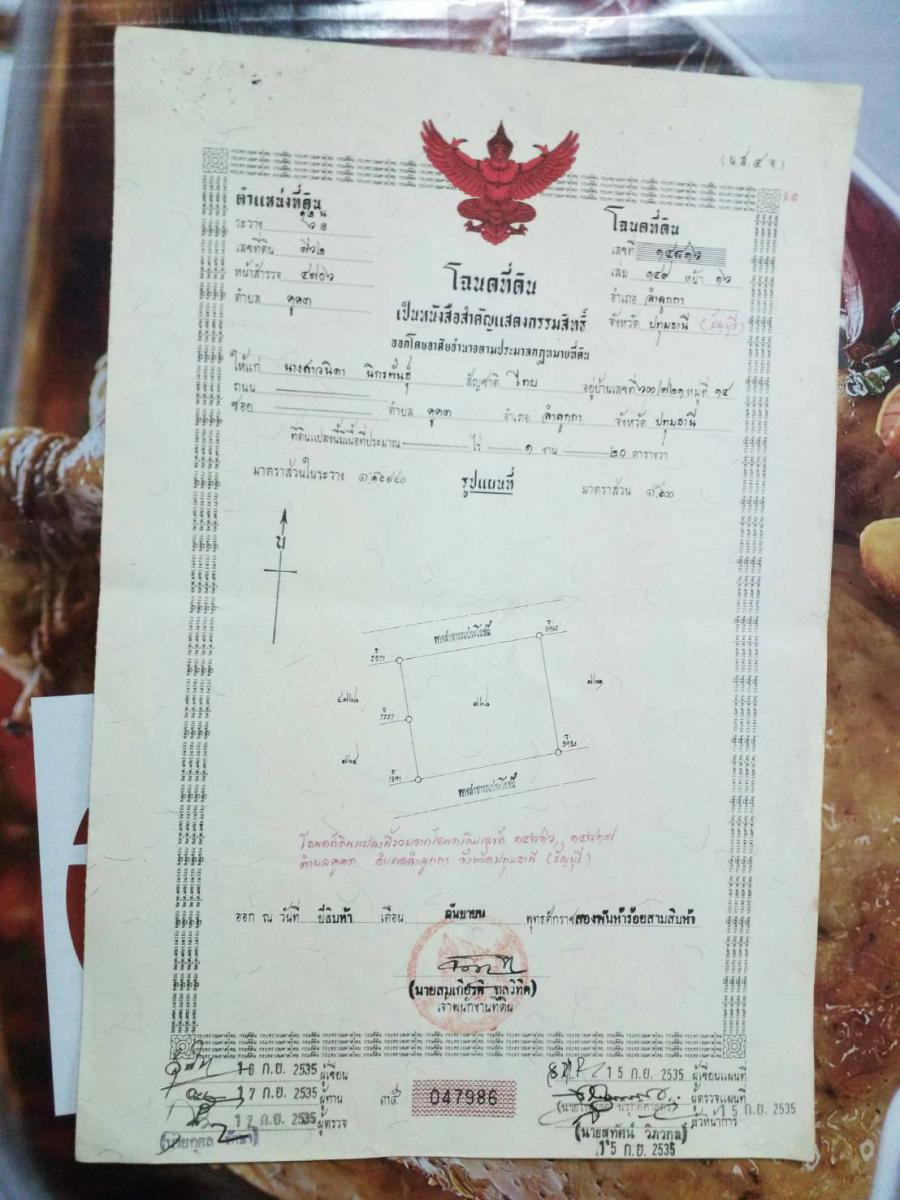 (น.ส.๔ จ)
ตำแหน่งที่ดิน
ระวาง
เลขที่ดิน ๗๖๒
หน้าสำรวจ ๔๗๐๖
ตำบล คูคต
โฉนดที่ดิน
เลขที่
เล่ม ๑๔๙ หน้า ๑๖
อำเภอ ลำลูกกา
จังหวัด ปทุมธานี (ธัญบุรี)
โฉนดที่ดิน
เป็นหนังสือสำคัญแสดงกรรมสิทธิ์
ออกโดยอาศัยอำนาจตามประมวลกฎหมายที่ดิน
ให้แก่ นางสาวนิดา นิกรพันธุ์ สัญชาติ ไทย อยู่บ้านเลขที่ ๖๐๐/๗๒๑ หมู่ที่ ๑๔
ถนน
ซอย ตำบล คูคต อำเภอ ลำลูกกา จังหวัด ปทุมธานี
ที่ดินแปลงนี้มีเนื้อที่ประมาณ ไร่ ๑ งาน ๒๐ ตารางวา
มาตราส่วนในระวาง รูปแผนที่ มาตราส่วน ๑:๕๐๐
น
ทางสาธารณประโยชน์
ทางสาธารณประโยชน์
โฉนดที่ดินแปลงนี้รวมจากโฉนดที่ดินเลขที่
ตำบลคูคต อำเภอลำลูกกา จังหวัดปทุมธานี (ธัญบุรี)
ออก ณ วันที่ ยี่สิบห้า เดือน กันยายน พุทธศักราช สองพันห้าร้อยสามสิบห้า
(นายสมเกียรติ
เจ้าพนักงานที่ดิน
16 ก.ย. 2535 ผู้เขียน
17 ก.ย. 2535 ผู้ทาน
17 ก.ย. 2535 ผู้ตรวจ
047986
15 ก.ย. 2535 ผู้เขียนแผนที่
ผู้ตรวจแผนที่
15 ก.ย. 2535
(นายสุทัศน์ วิภวกุล)
15 ก.ย. 2535